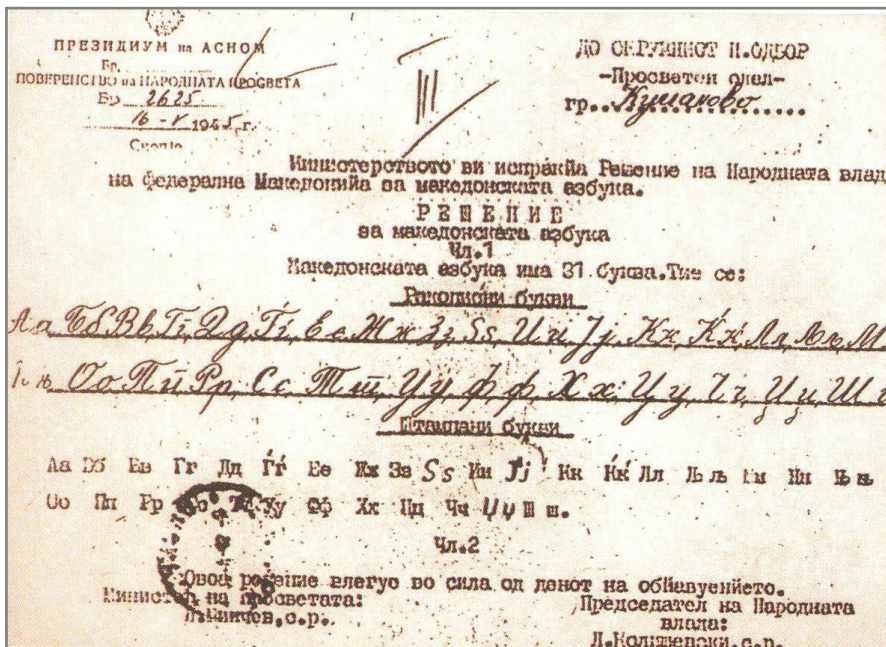 ПРЕЗИДИУМ на АСНОМ
Бр.
ПОВЕРЕНСТВО на НАРОДНАТА ПРОСВЕТА
Бр 2625
16-V 1945 г.
Скопје
III
ДО ОКРУЖНИОТ Н.ОДБОР
-Просветен одел-
гр...Куманово
Министерството ви испраќа Решение на Народната влад
на федерална Македонија за македонската азбука.
РЕШЕНИЕ
за македонската азбука
Чл.1
Македонската азбука има 31 буква.Тие се:
Ракописни букви
Аа Бб Вв Гг Дд Ѓѓ Ее Жж Зз Ѕѕ Ии Јј Кк Ќќ Лл Љљ М
Оо Пп Рр Сс Тт Уу Фф Хх Цц Чч Џџ Ш
Штампани букви
Аа Бб Вв Гг Дд Ѓѓ Ее Жж Зз Ѕѕ Ии Јј Кк Ќќ Лл Љљ Мм Нн Њњ
Оо Пп Рр Сс Тт Уу Фф Хх Цц Чч Џџ Шш.
Чл.2
Овоа решение влегуе во сила од денот на
Министер на просветата:
Председател на Народната
влада:
Л.Колишевски,с.р.